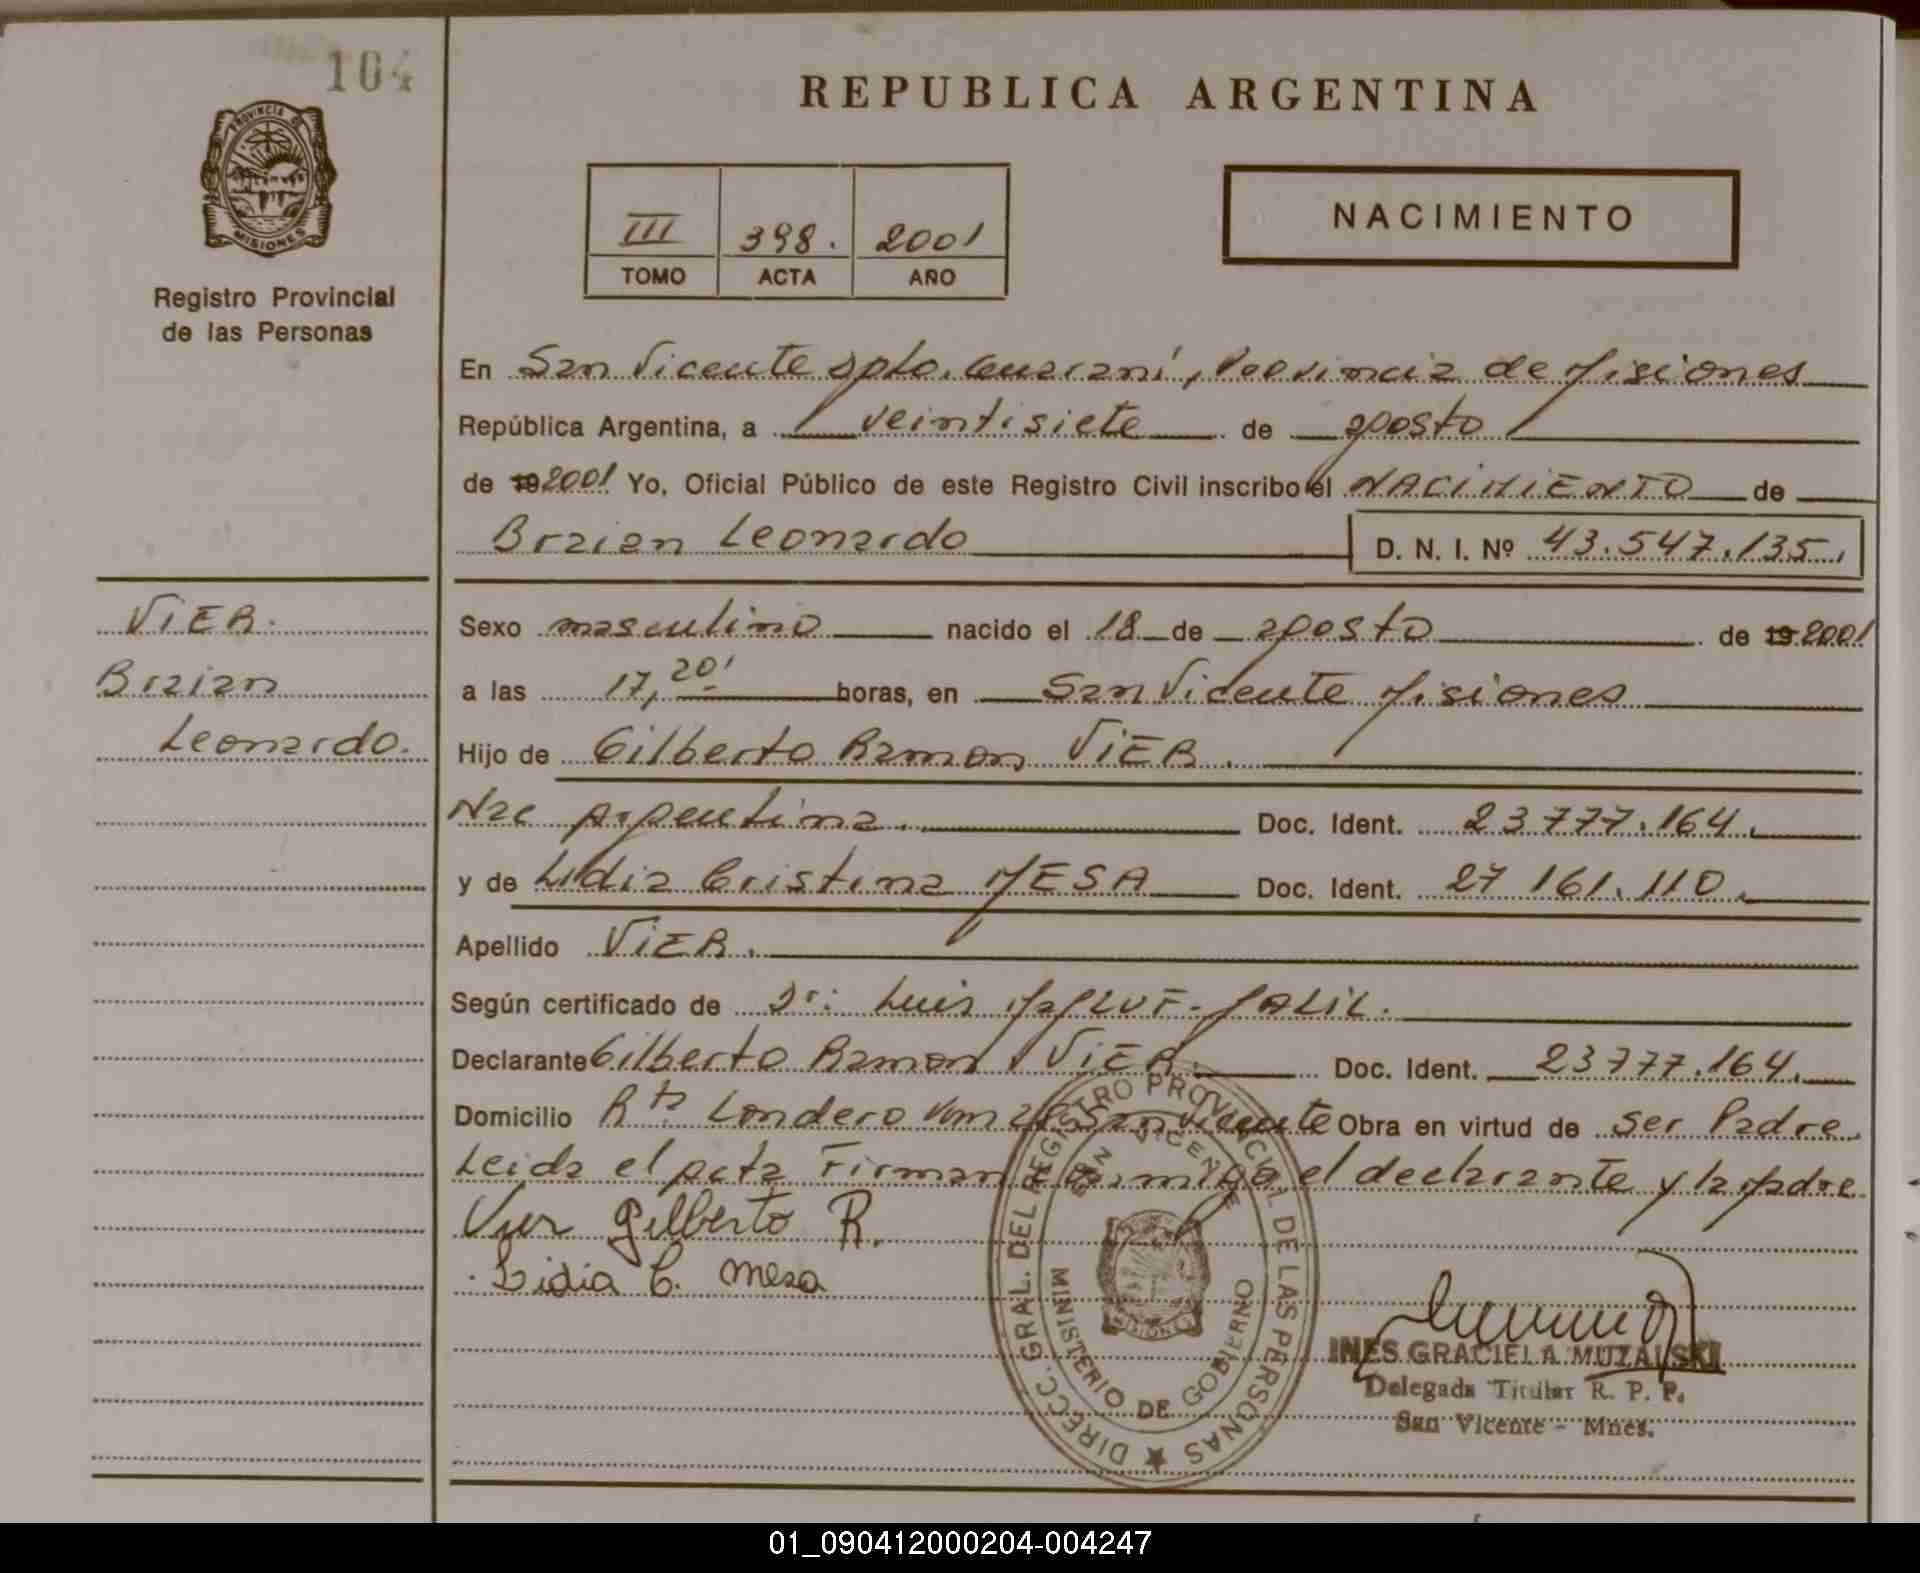 104
PROVINCIA D
MISIONES
Registro Provincial
de las Personas
REPUBLICA ARGENTINA
III 398. 2001
TOMO ACTA AÑO
NACIMIENTO
En San Vicente Dpto. Guaraní, Provincia de Misiones
República Argentina, a veintisiete de agosto
de 19 2001 Yo, Oficial Público de este Registro Civil inscribo el NACIMIENTO de
Braian Leonardo D. N. I. Nº 43.547.135.
VIER.
Braian
Leonardo.
Sexo masculino nacido el 18 de agosto de 19 2001
a las 17,20' horas, en San Vicente Misiones
Hijo de Gilberto Ramon VIER.
Nac Argentina. Doc. Ident. 23 777.164.
y de Lidia Cristina MESA Doc. Ident. 27 161.110.
Apellido VIER.
Según certificado de Dr: Luis JALIL.
Declarante Gilberto Ramon VIER. Doc. Ident. 23 777.164.
Domicilio Rta Londero San Vicente Obra en virtud de ser Padre.
Leida el acta Firman conmigo el declarante y la Madre.
Vier Gilberto R.
Lidia C. Mesa
DIRECC. GRAL. DEL REGISTRO PROVINCIAL DE LAS PERSONAS
SAN VICENTE
MINISTERIO DE GOBIERNO
MISIONES
INES GRACIELA MUZALSKI
Delegada Titular R. P. P.
San Vicente - Mnes.
01_090412000204-004247